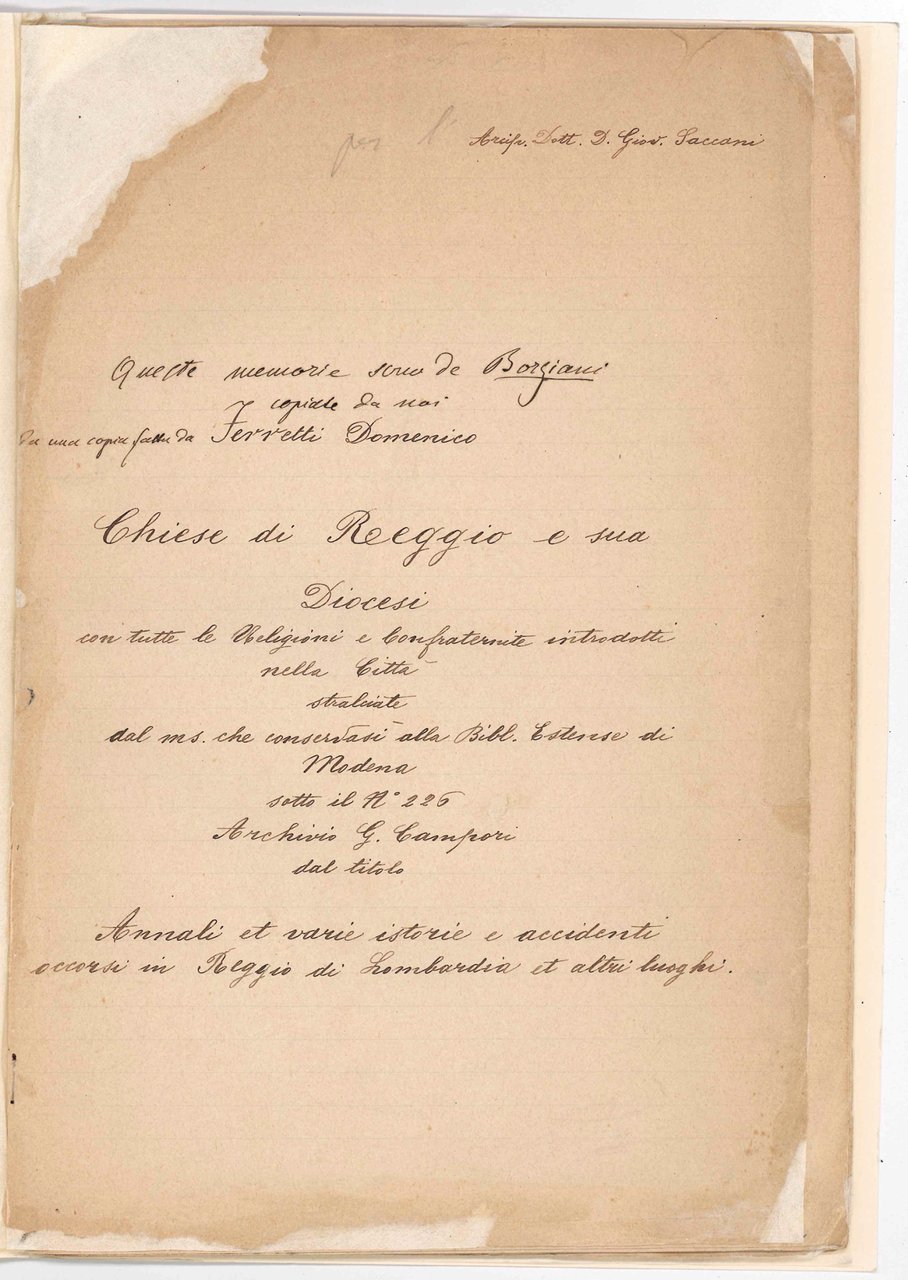 per l'
Arcipr. Dott. D. Giov. Saccani
Queste memorie sono de Borziani
e copiate da noi
da una copia fatta da Ferretti Domenico
Chiese di Reeggio e sua
Diocesi
con tutte le Religioni e Confraternite introdotti
nella Città
stralciate
dal ms. che conservasi alla Bibl. Estense di
Modena
sotto il N° 226
Archivio G. Campori
dal titolo
Annali et varie istorie e accidenti
occorsi in Reggio di Lombardia et altri luoghi.